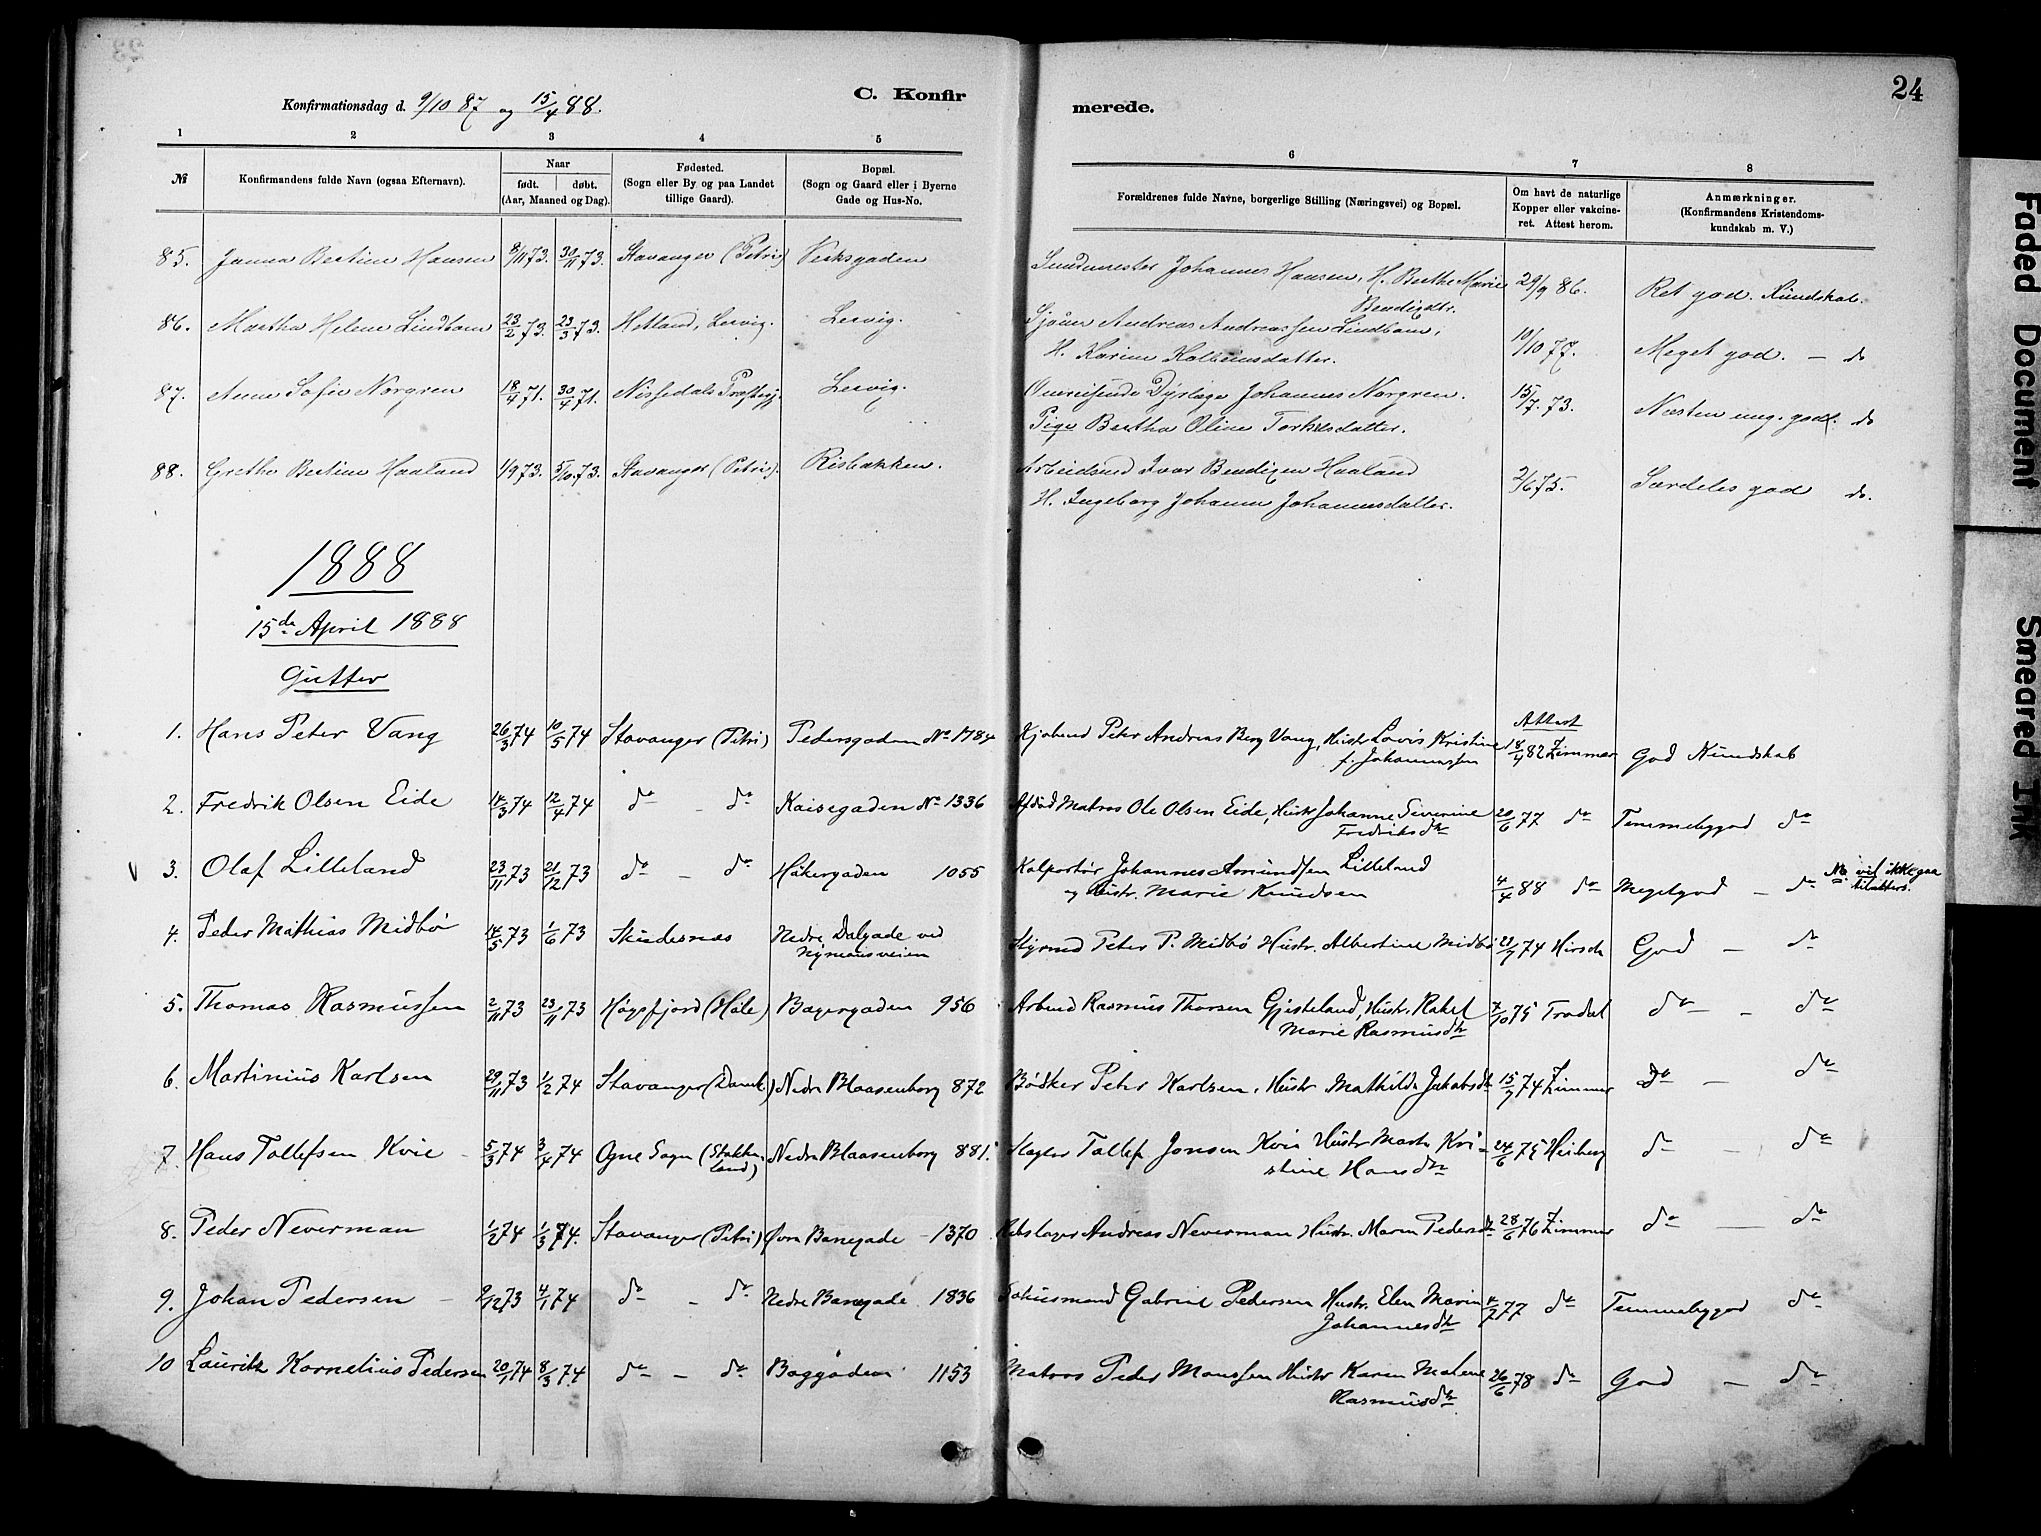 24
C. Konfirmerede.
Konfirmationsdag d. 9/10 87 og 15/4 88.
1 2 3 4 5 6 7 8
№
Konfirmandens fulde Navn (ogsaa Efternavn).
Naar
født. døbt.
(Aar, Maaned og Dag).
Fødested.
(Sogn eller By og paa Landet
tillige Gaard).
Bopæl.
(Sogn og Gaard eller i Byerne
Gade og Hus-No.
Forældrenes fulde Navne, borgerlige Stilling (Næringsvei) og Bopæl.
Om havt de naturlige
Kopper eller vakcine-
ret. Attest herom.
Anmærkninger.
(Konfirmandens Kristendoms-
kundskab m. V.)
85. Janna Bertine Hansen 8/11 73. 30/11 73. Stavanger (Petri) Verksgaden Johannes Hansen, H. Berthe Marie 29/9 86. Ret god. Kundskab.
Bendigdtr.
86. Martha Helene Lindbom 23/2 73. 23/3 73. Hetland, Lervig. Lervig. Andreas Andreassen Lindbom, 10/10 77. Meget god. — do
H. Karine
87. Anne Sofie Norgren 18/4 71. 30/4 71. Nissedals Præstegj. Lervig. Omreisende Dyrlæge Johannes Norgren. 15/7. 73. Næsten mg. god. do
Pige Bertha Oline Torkelsdatter.
88. Grethe Bertine Haaland 1/9 73. 5/10. 73. Stavanger (Petri). Risbakken. Arbeidsmd Ivar Bendixen Haaland 2/6 75. Særdeles god do.
H. Ingeborg Johanne Johannesdatter.
1888
15de April 1888
Gutter
1. Hans Peter Vang 26/3 74 10/5 74 Stavanger (Petri) Pedersgaden No 1784 Kjøbmd Peter Andreas Berg Vang, Hustr Lovis Kristine Attest 18/4 82 Zimmer God Kundskab
f. Johannessen
2. Fredrik Olsen Eide 14/3 74 12/4 74 do - do Kaisegaden No 1336 Afdød Matros Ole Olsen Eide, Hustr Johanne Severine 20/6 77 do Temmelig god do
Fredriksdtr
3. Olaf Lilleland 23/11 73 21/12 73 do - do Høkergaden 1055 Kolportør Johannes Amundsen Lilleland 4/4 88 do Meget god - do Nb vil ikke gaa
og Hustr. Marie Knudsen tilalters.
4. Peder Mathias Midbø 14/5 73 1/6 73 Skudesnæs Nedre Dalgade ved Styrmd Peter P. Midbø Hustr. Albertine Midbø 74 Hirsch God — do
Nymansveien
5. Thomas Rasmussen 2/11 73 23/11 73 Høgsfjord (Høle) Bagergaden 956 Arbmd Rasmus Thorsen Gjesteland, Hustr. Rakel 7/10 75 do — - do
Marie Rasmusdtr
6. Martinius Karlsen 29/11 73 1/2 74 Stavanger (Domk.) Nedre Blaasenborg 872 Bødker Peter Karlsen, Hustr Mathilde Jakobsdtr 15/7 74 Zimmer do — do
7. Hans Tollefsen Kvie 5/3 74 3/4 74 Ogne Sogn (Stokke- Nedre Blaasenborg 881. Slagter Tollef Jonsen Kvie Hustr Marte Kri- 24/6 75 Heiberg do — do
land) stine Hansdtr
8. Peder Neverman 1/2 74 1/3 74. Stavanger (Petri) Øvre Banegade - 1370 Rebslager Andreas Neverman Hustr. Maren Pedersdtr 28/6 76 Zimmer do — do
9. Johan Pedersen - 9/12 73 4/1 74 do - do Nedre Banegade 1836 Gabriel Pedersen Hustr. Elen Marie 4/7 77 do Temmelig god do
Johannesdtr
10 Lauritz Kornelius Pedersen 20/1 74 8/3 74 do - do Baggaden 1153 Matros Peder Monssen Hustr Karen Malene 26/6 78 do God — do
Rasmusdtr
Faded Document
Smeared Ink